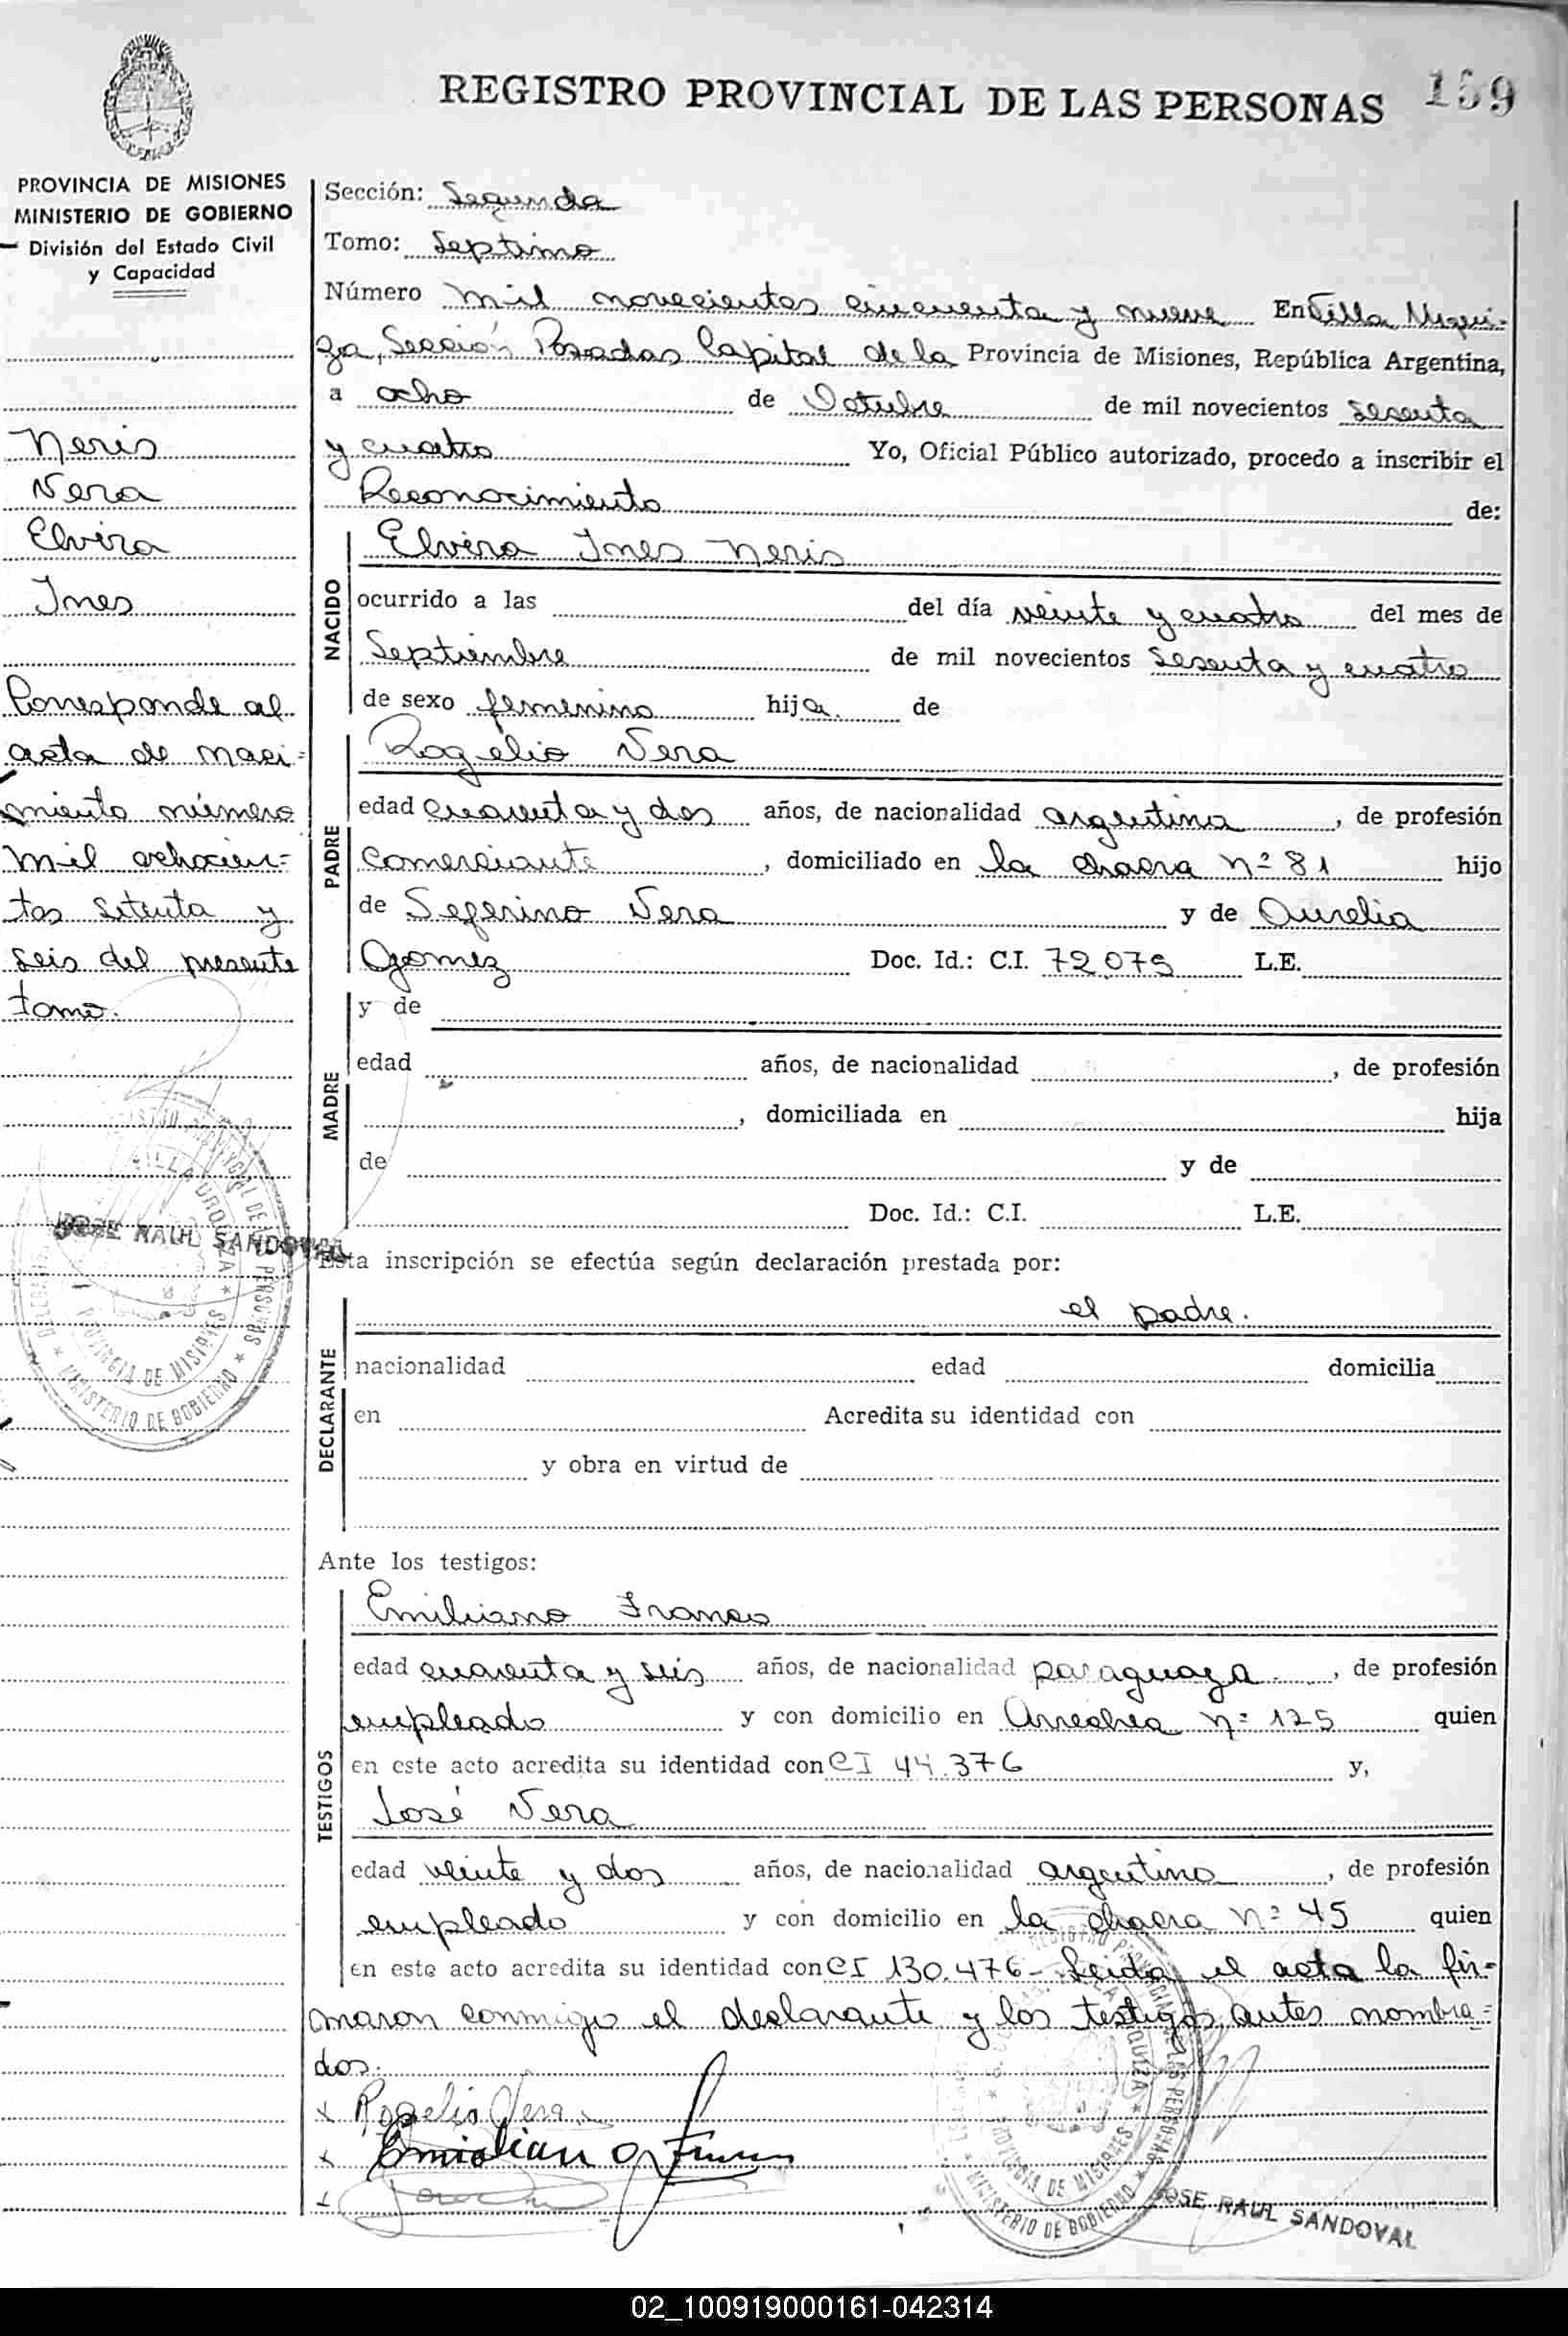 REGISTRO PROVINCIAL DE LAS PERSONAS 159
PROVINCIA DE MISIONES
MINISTERIO DE GOBIERNO
División del Estado Civil
y Capacidad
Neris
Vera
Elvira
Ines
Corresponde al
acta de naci-
miento número
mil ochocien-
tos setenta y
seis del presente
tomo.
JOSE RAUL SANDOVAL
Sección: Segunda
Tomo: Septimo
Número mil novecientos cincuenta y nueve En Villa Urqui-
za, Sección Posadas Capital de la Provincia de Misiones, República Argentina,
a ocho de Octubre de mil novecientos sesenta
y cuatro Yo, Oficial Público autorizado, procedo a inscribir el
Reconocimiento de:
NACIDO
Elvira Ines Neris
ocurrido a las del día veinte y cuatro del mes de
Septiembre de mil novecientos sesenta y cuatro
de sexo femenino hija de
PADRE
Rogelio Vera
edad cuarenta y dos años, de nacionalidad argentina, de profesión
comerciante, domiciliado en la chacra nº 81 hijo
de Seferino Vera y de Aurelia
Gomez Doc. Id.: C.I. 72.079 L.E.
MADRE
y de
edad años, de nacionalidad , de profesión
, domiciliada en hija
de y de
Doc. Id.: C.I. L.E.
Esta inscripción se efectúa según declaración prestada por:
DECLARANTE
el padre.
nacionalidad edad domicilia
en Acredita su identidad con
y obra en virtud de
Ante los testigos:
TESTIGOS
Emiliano Franco
edad cuarenta y seis años, de nacionalidad paraguaya, de profesión
empleado y con domicilio en Arrechea nº 125 quien
en este acto acredita su identidad con CI 44.376 y,
José Vera
edad veinte y dos años, de nacionalidad argentino, de profesión
empleado y con domicilio en la chacra nº 45 quien
en este acto acredita su identidad con CI 130.476- Leida el acta la fir-
maron conmigo el declarante y los testigos antes nombra-
dos.
x Rogelio Vera
x Emiliano Franco
REGISTRO PROVINCIAL DE LAS PERSONAS
VILLA URQUIZA
PROVINCIA DE MISIONES
MINISTERIO DE GOBIERNO
JOSE RAUL SANDOVAL
02_100919000161-042314